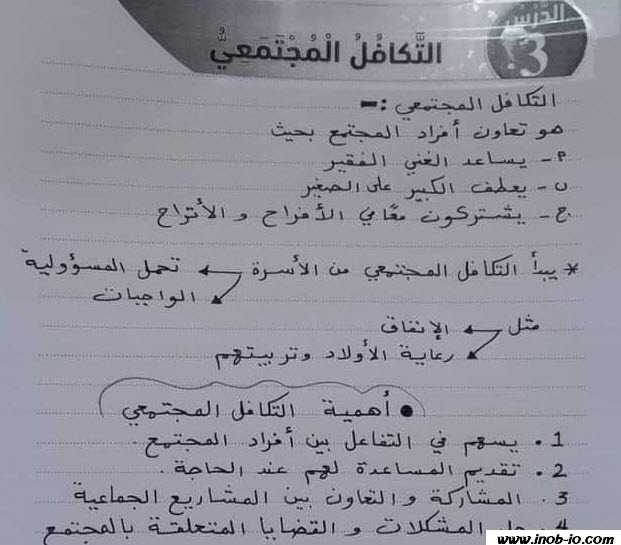 الدَّرْسُ
3
التَّكافُلُ الْمُجْتَمَعِيُّ
التكافل المجتمعي :-
هو تعاون أفراد المجتمع بحيث
أ- يساعد الغني الفقير
ب- يعطف الكبير على الصغير
ج- يشتركون معًا في الأفراح و الأتراح
* يبدأ التكافل المجتمعي من الأسرة ← تحمل المسؤولية
الواجبات
مثل ← الإنفاق
رعاية الأولاد وتربيتهم
• أهمية التكافل المجتمعي
1. يسهم في التفاعل بين أفراد المجتمع.
2. تقديم المساعدة لهم عند الحاجة.
3. المشاركة و التعاون بين المشاريع الجماعية
4. حل المشكلات و القضايا المتعلقة بالمجتمع
www.inob-io.com